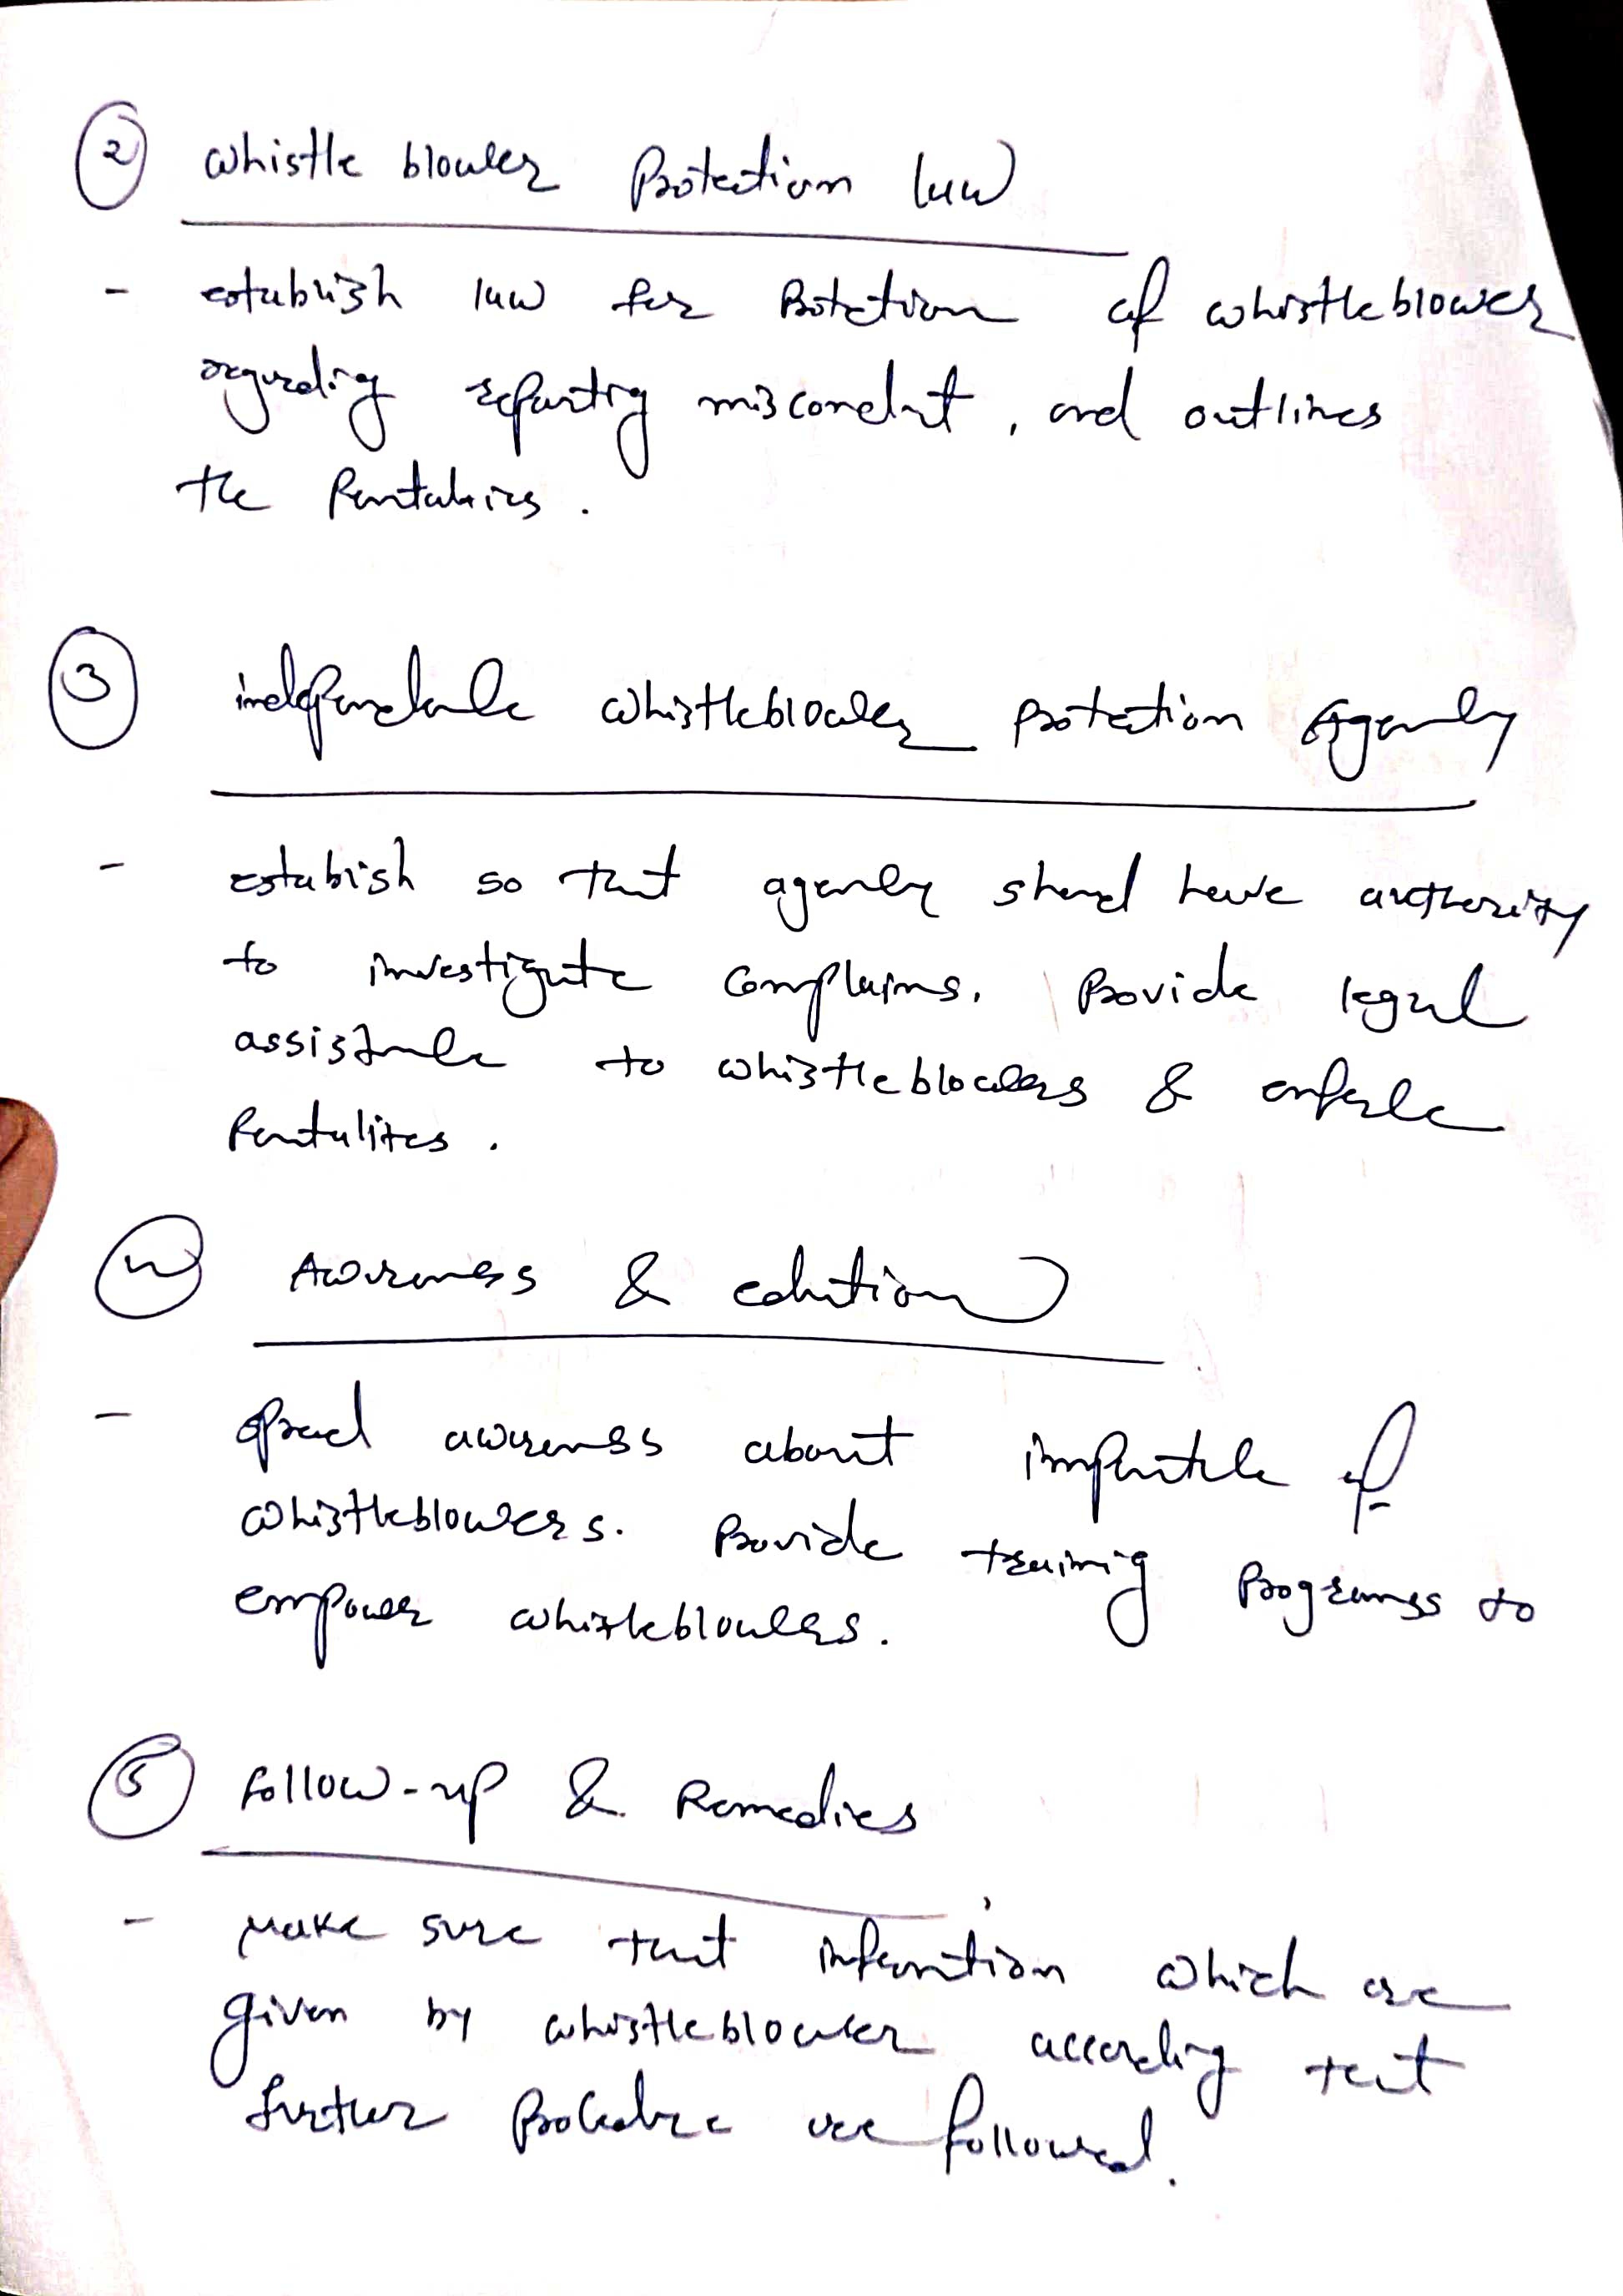 2 Whistle blower Protection law
- establish law for Protection of whistleblower
regarding reporting misconduct, and outlines
the Pentalties.
3 independence whistleblower protection Agency
- establish so that agency should have authority
to investigate complains. Provide legal
assistance to whistleblowers & enforce
Pentalites.
4 Awareness & edution
- spread awareness about importance of
whistleblowers. Provide training Programss to
empower whistleblowers.
5 Follow-up & Remedies
- Make sure that information which are
given by whistleblower according that
further Procedure are followed.